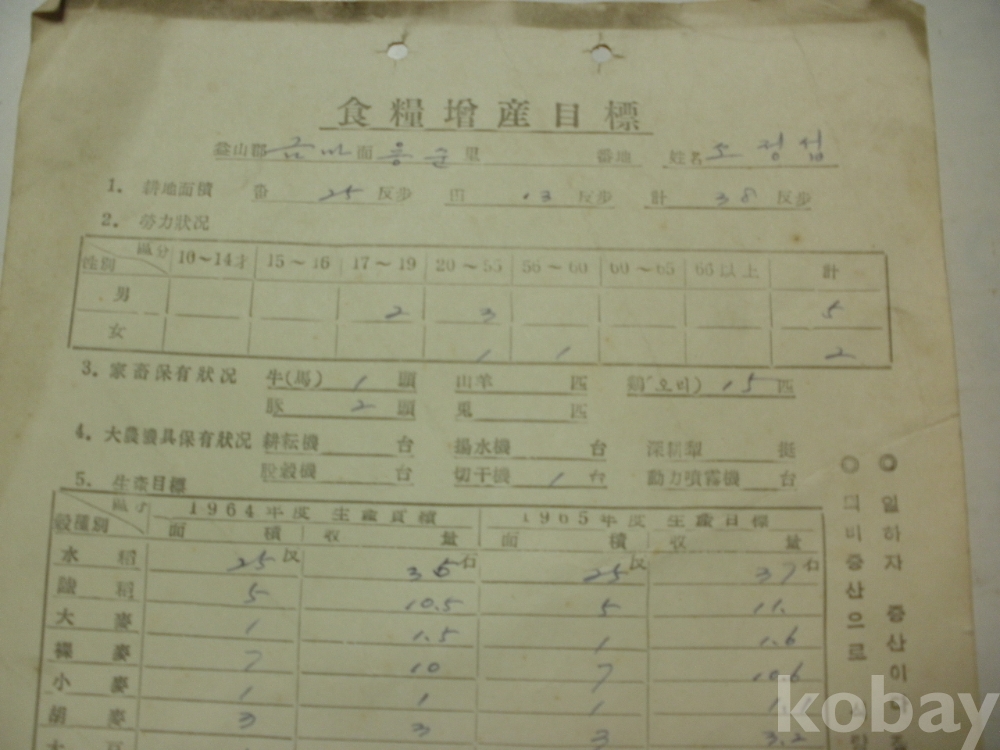 食糧增産目標
益山郡 금마 面 용순 里 番地 姓名 조정섭
1. 耕地面積 畓 25 反步 田 13 反步 計 38 反步
2. 勞力狀況
區分 性別 10～14才 15～16 17～19 20～55 56～60 60～65 65以上 計
男 2 3 5
女 1 1 2
3. 家畜保有狀況 牛(馬) 1 頭 山羊 匹 鷄(오리) 15 匹
豚 2 頭 兎 匹
4. 大農機具保有狀況 耕耘機 台 揚水機 台 深耕犁 挺
脫穀機 台 切干機 1 台 動力噴霧機 台
5. 生産目標
區分 穀種別 1964年度 生産實積 1965年度 生産目標
面積 收量 面積 收量
水稻 25反 35石 25反 37石
陸稻 5 10.5 5 11.
大麥 1 1.5 1 1.6
裸麥 7 10 7 10.6
小麥 1 1 1
胡麥 3 3 3 3.2
大豆
◎ 일하자 증산이다
○ 퇴비증산으로
kobay